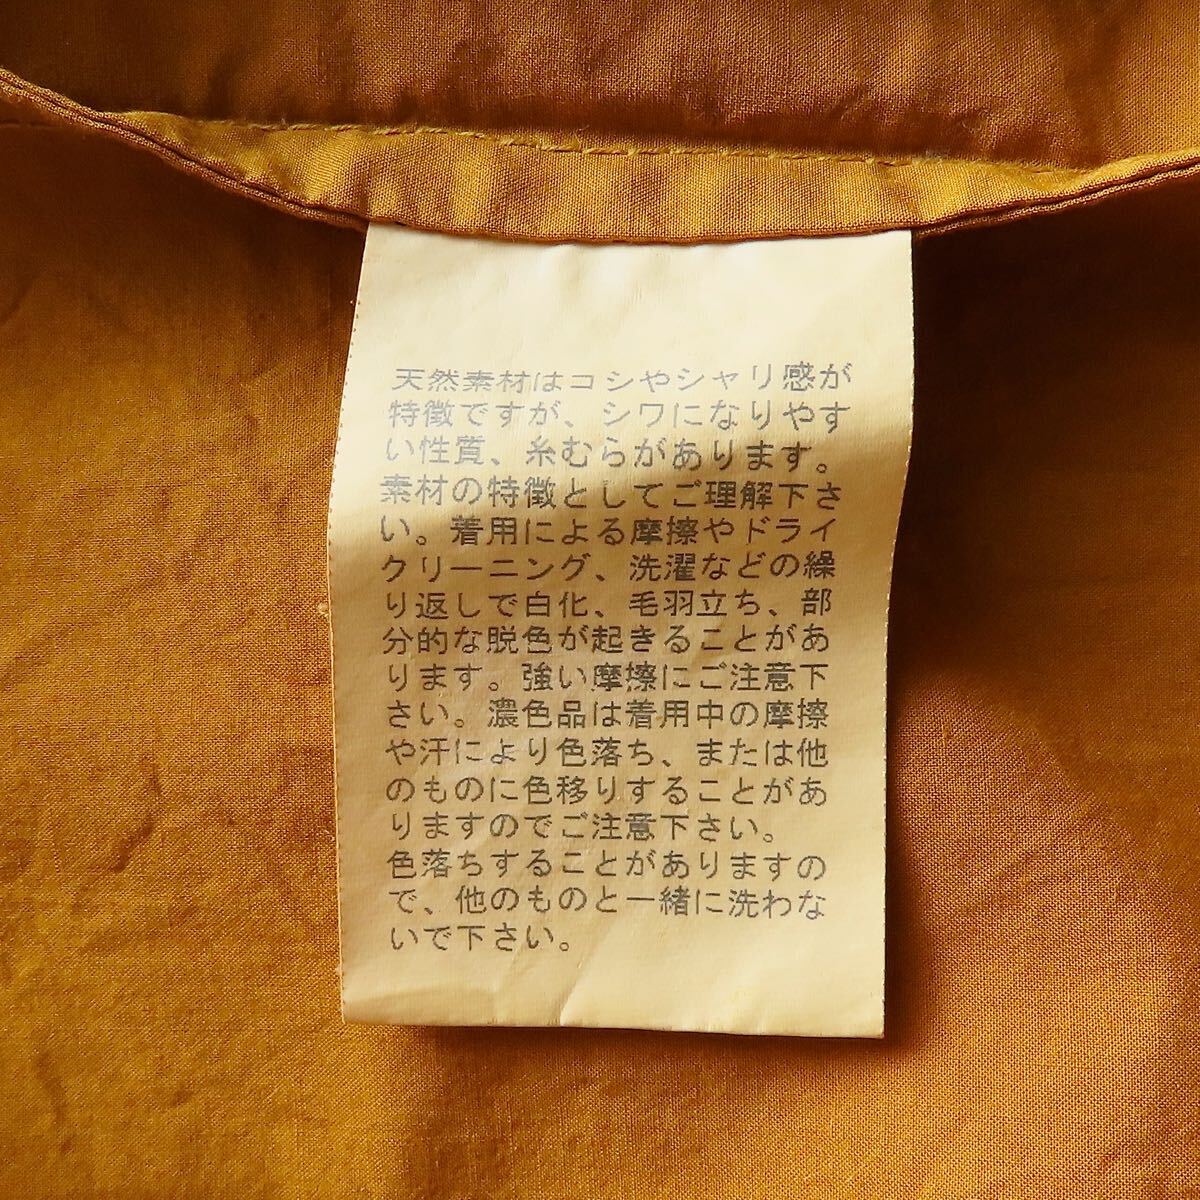 天然素材はコシやシャリ感が
特徴ですが、シワになりやす
い性質、糸むらがあります。
素材の特徴としてご理解下さ
い。着用による摩擦やドライ
クリーニング、洗濯などの繰
り返しで白化、毛羽立ち、部
分的な脱色が起きることがあ
ります。強い摩擦にご注意下
さい。濃色品は着用中の摩擦
や汗により色落ち、または他
のものに色移りすることがあ
りますのでご注意下さい。
色落ちすることがありますの
で、他のものと一緒に洗わな
いで下さい。